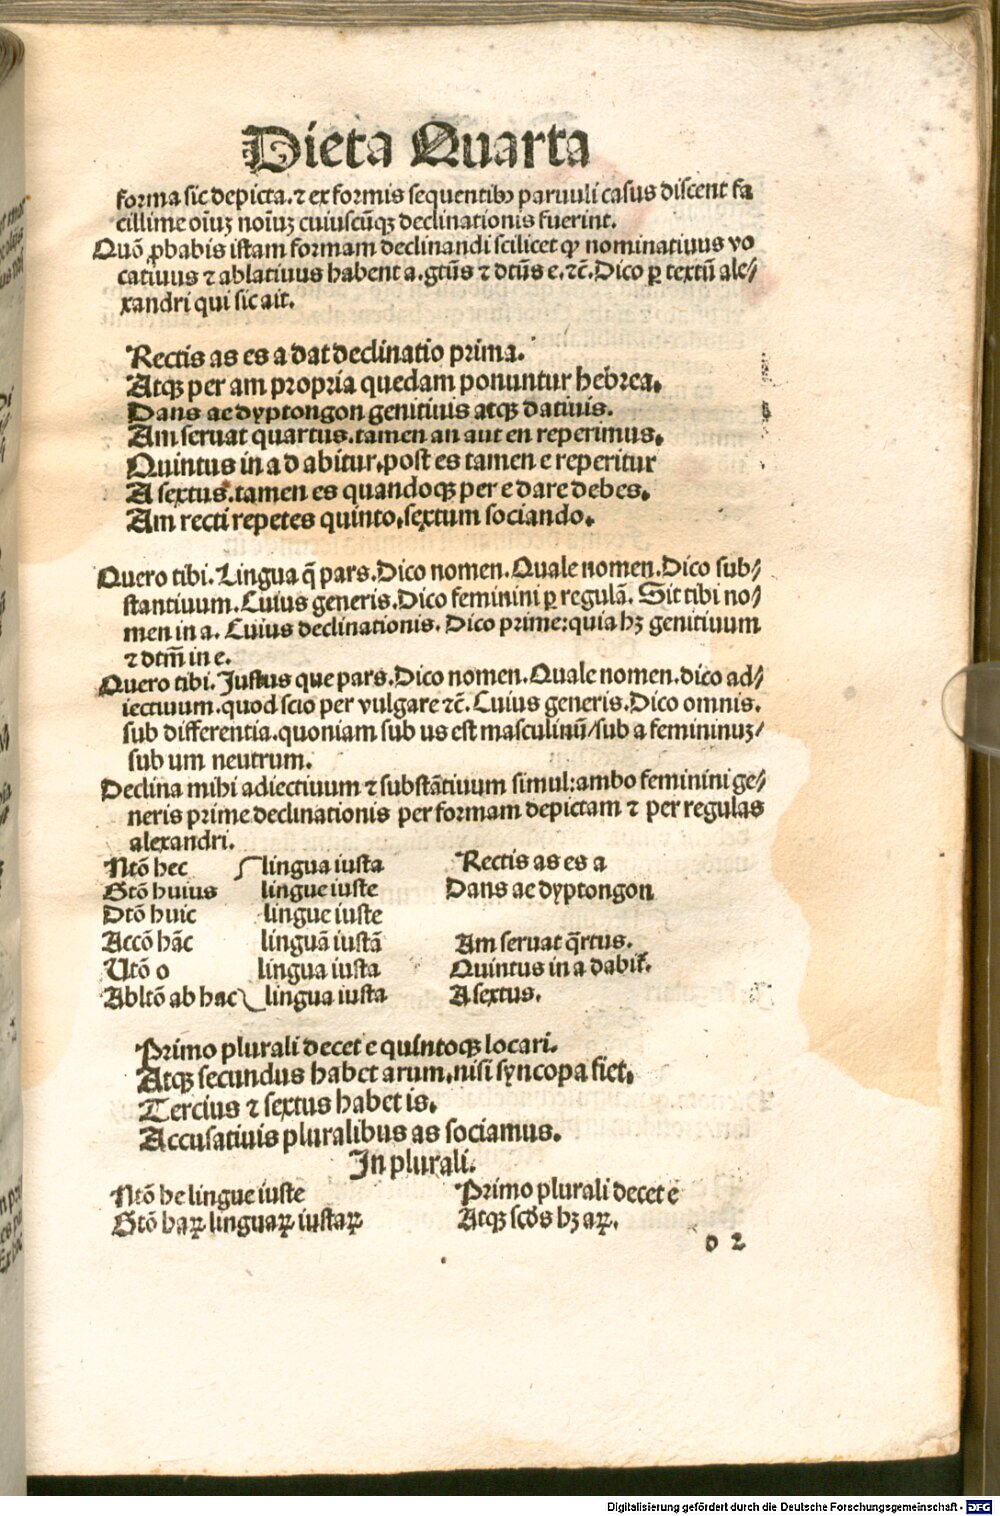 Dieta Quarta
forma sic depicta. ⁊ ex formis sequentibꝰ paruuli casus discent fa
cillime oīuꝫ noīuꝫ cuiuscūqꝫ declinationis fuerint.
Quō ꝓbabis istam formam declinandi scilicet ꝙ nominatiuus vo
catiuus ⁊ ablatiuus habent a. gtūs ⁊ dtūs e. ⁊c̄. Dico ꝑ textū ale⸗/
xandri qui sic ait.
Rectis as es a dat declinatio prima.
Atqꝫ per am propria quedam ponuntur hebrea.
Dans ae dyptongon genitiuis atqꝫ datiuis.
Am seruat quartus. tamen an aut en reperimus.
Quintus in a dabitur. post es tamen e reperitur
A sextus. tamen es quandoqꝫ per e dare debes.
Am recti repetes quinto. sextum sociando.
Quero tibi. Lingua q̄ pars. Dico nomen. Quale nomen. Dico sub⸗/
stantiuum. Cuius generis. Dico feminini ꝑ regulā. Sit tibi no⸗/
men in a. Cuius declinationis. Dico prime: quia hꝫ genitiuum
⁊ dtm̄ in e.
Quero tibi. Justus que pars. Dico nomen. Quale nomen. dico ad⸗/
iectiuum. quod scio per vulgare ⁊c̄. Cuius generis. Dico omnis.
sub differentia. quoniam sub us est masculinū/ sub a femininuꝫ/
sub um neutrum.
Declina mihi adiectiuum ⁊ substātiuum simul: ambo feminini ge⸗/
neris prime declinationis per formam depictam ⁊ per regulas
alexandri.
Ntō hec lingua iusta Rectis as es a
Gtō huius lingue iuste Dans ae dyptongon
Dtō huic lingue iuste
Accō hāc linguā iustā Am seruat q̄rtus.
Utō o lingua iusta Quintus in a dabit᷑.
Abltō ab hac lingua iusta A sextus.
Primo plurali decet e quintoqꝫ locari.
Atqꝫ secundus habet arum. nisi syncopa fiet.
Tercius ⁊ sextus habet is.
Accusatiuis pluralibus as sociamus.
In plurali.
Ntō he lingue iuste Primo plurali decet e
Gtō haꝝ linguaꝝ iustaꝝ Atqꝫ scd̄s hꝫ aꝝ.
o 2
Digitalisierung gefördert durch die Deutsche Forschungsgemeinschaft - DFG